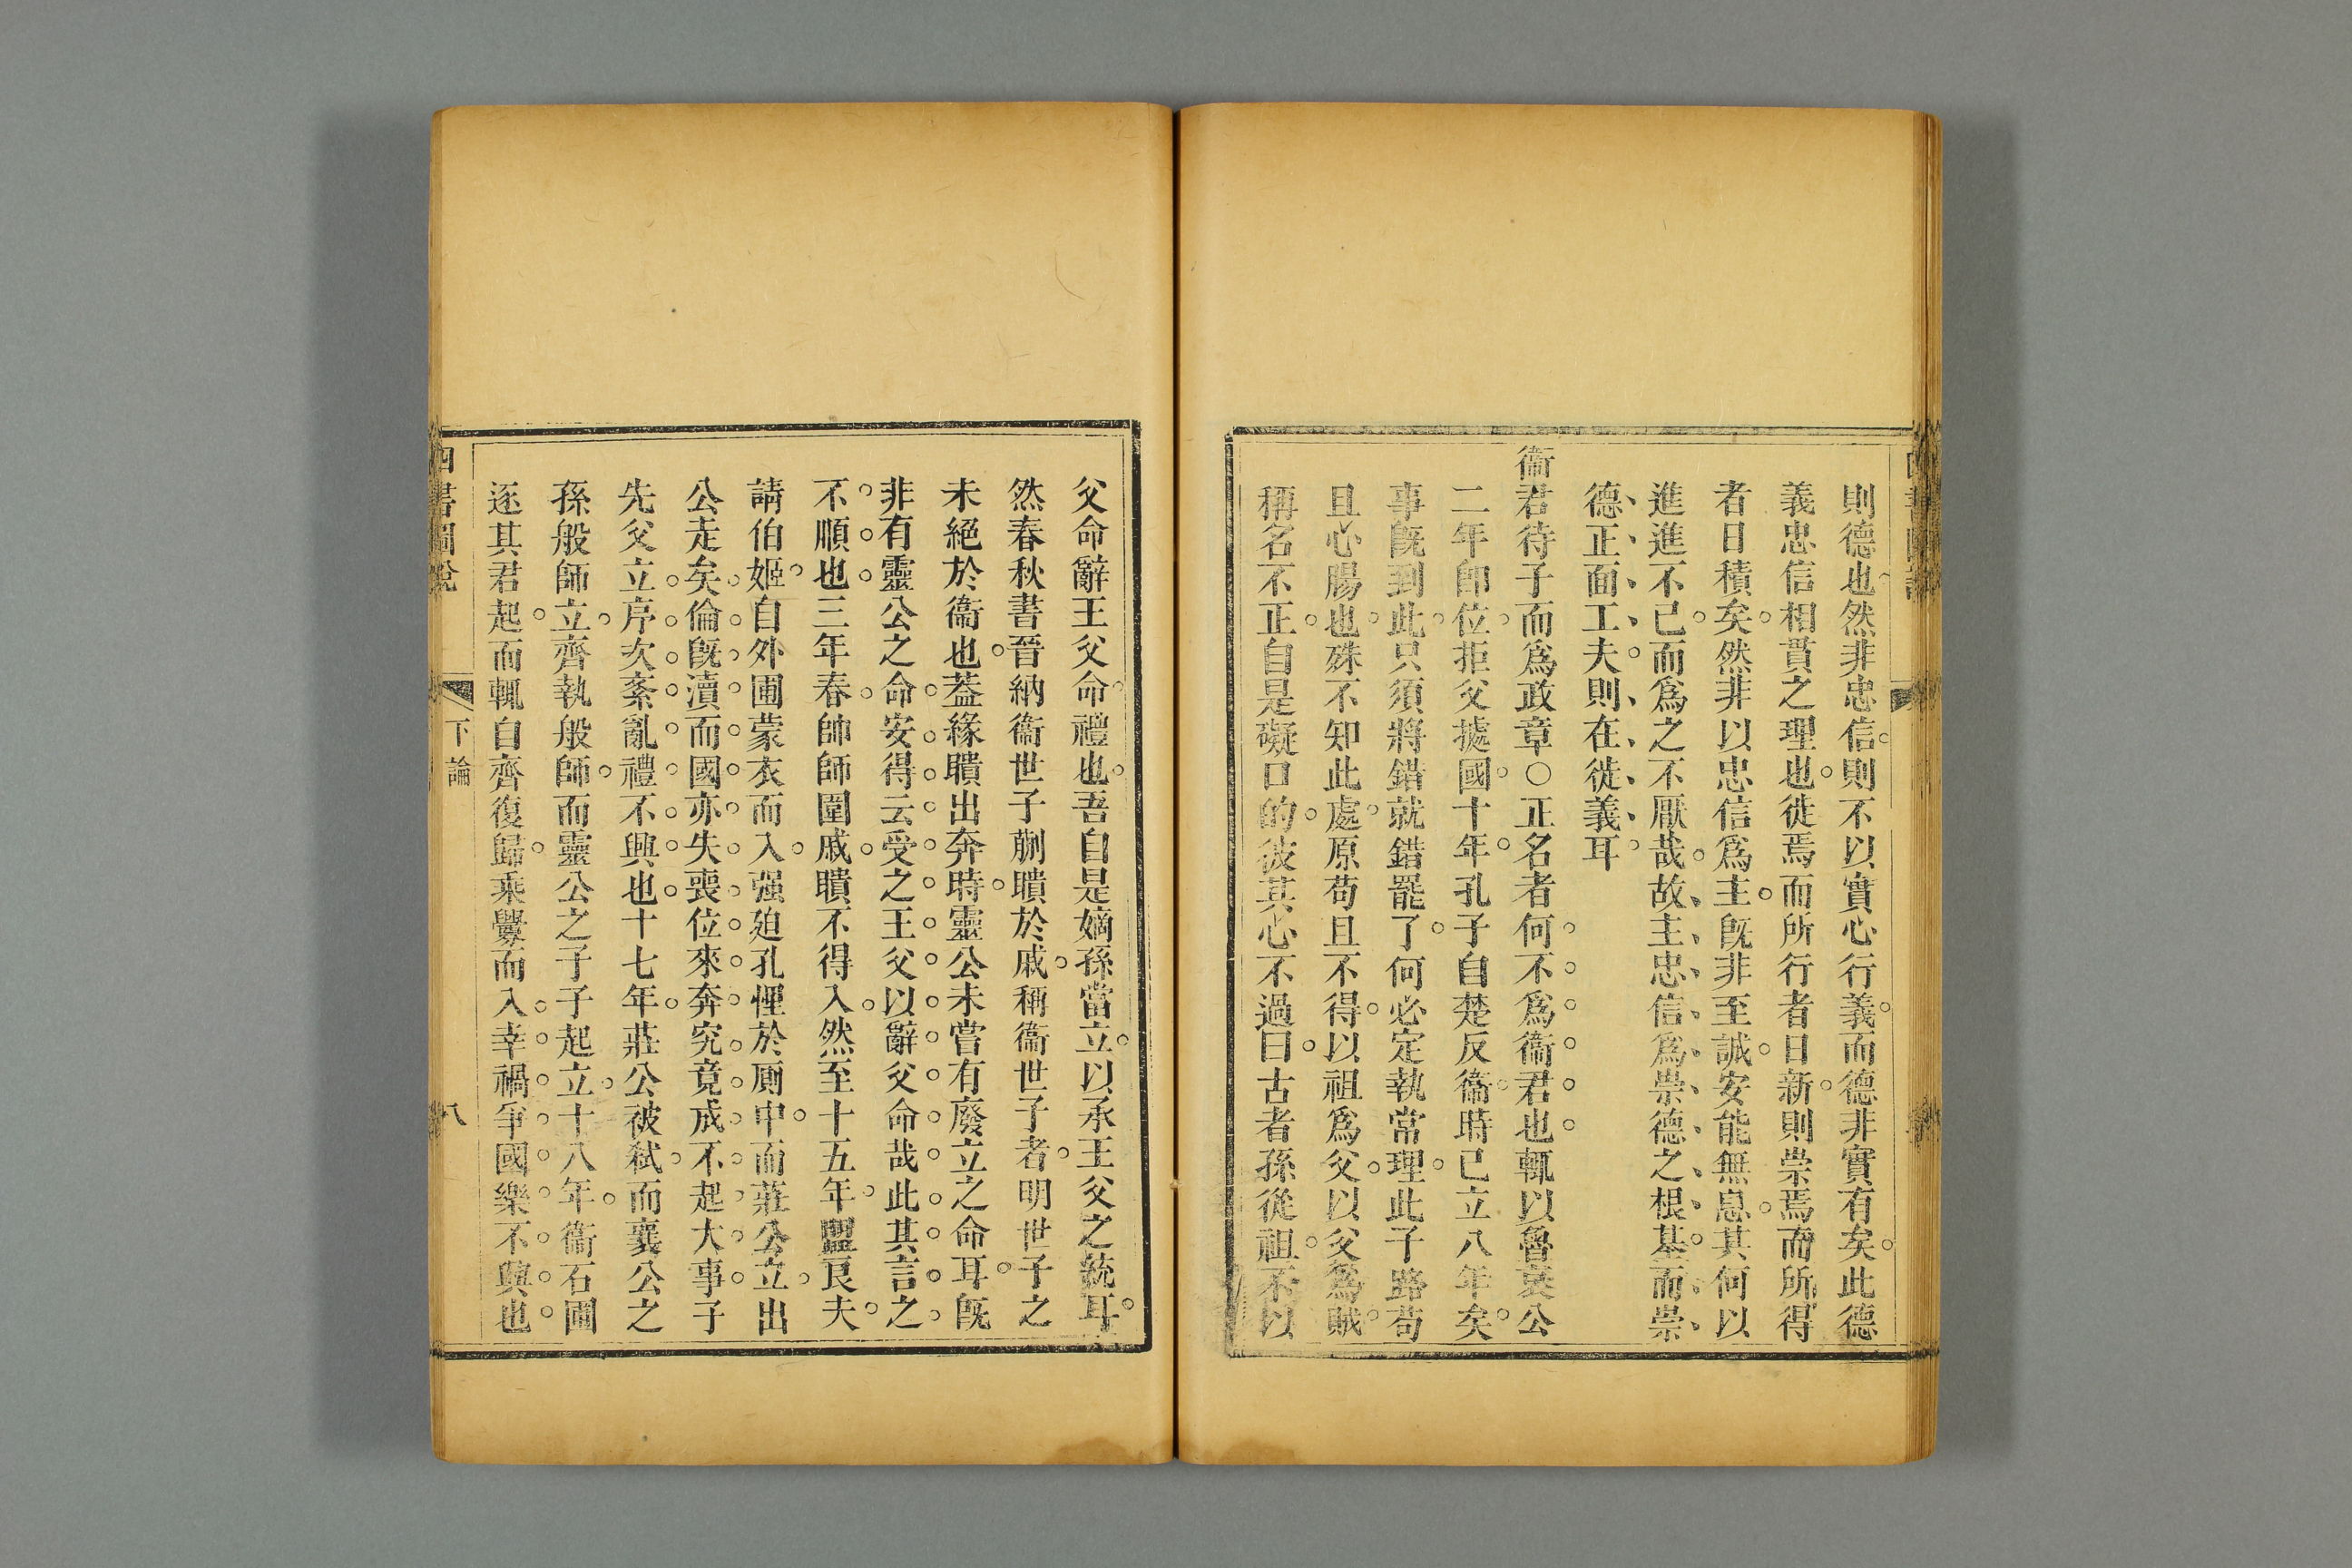 則德也然非忠信則不以實心行義而德非實有矣此德
義忠信相貫之理也徙焉而所行者日新則崇焉而所得
者日積矣然非以忠信爲主旣非至誠安能無息其何以
進進不已而爲之不厭哉故主忠信爲崇德之根基而崇
德正面工夫則在徙義耳
衞君待子而爲政章○正名者何不爲衞君也輒以魯哀公
二年卽位拒父據國十年孔子自楚反衞時已立八年矣
事旣到此只須將錯就錯罷了何必定執常理此子路苟
且心腸也殊不知此處原苟且不得以祖爲父以父爲賊
稱名不正自是礙口的彼其心不過曰古者孫從祖不以
父命辭王父命禮也吾自是嫡孫當立以承王父之統耳
然春秋書晉納衞世子蒯聵於戚稱衞世子者明世子之
未絕於衞也葢緣聵出奔時靈公未嘗有廢立之命耳旣
非有靈公之命安得云受之王父以辭父命哉此其言之
不順也三年春帥師圍戚聵不得入然至十五年盟良夫
請伯姬自外圃蒙衣而入强廹孔悝於厠中而莊公立出
公走矣倫旣瀆而國亦失喪位來奔究竟成不起大事子
先父立序次紊亂禮不興也十七年莊公被弑而襄公之
孫般師立齊執般師而靈公之子子起立十八年衞石圃
逐其君起而輒自齊復歸乘釁而入幸禍爭國樂不興也
四書圖說
下論
八